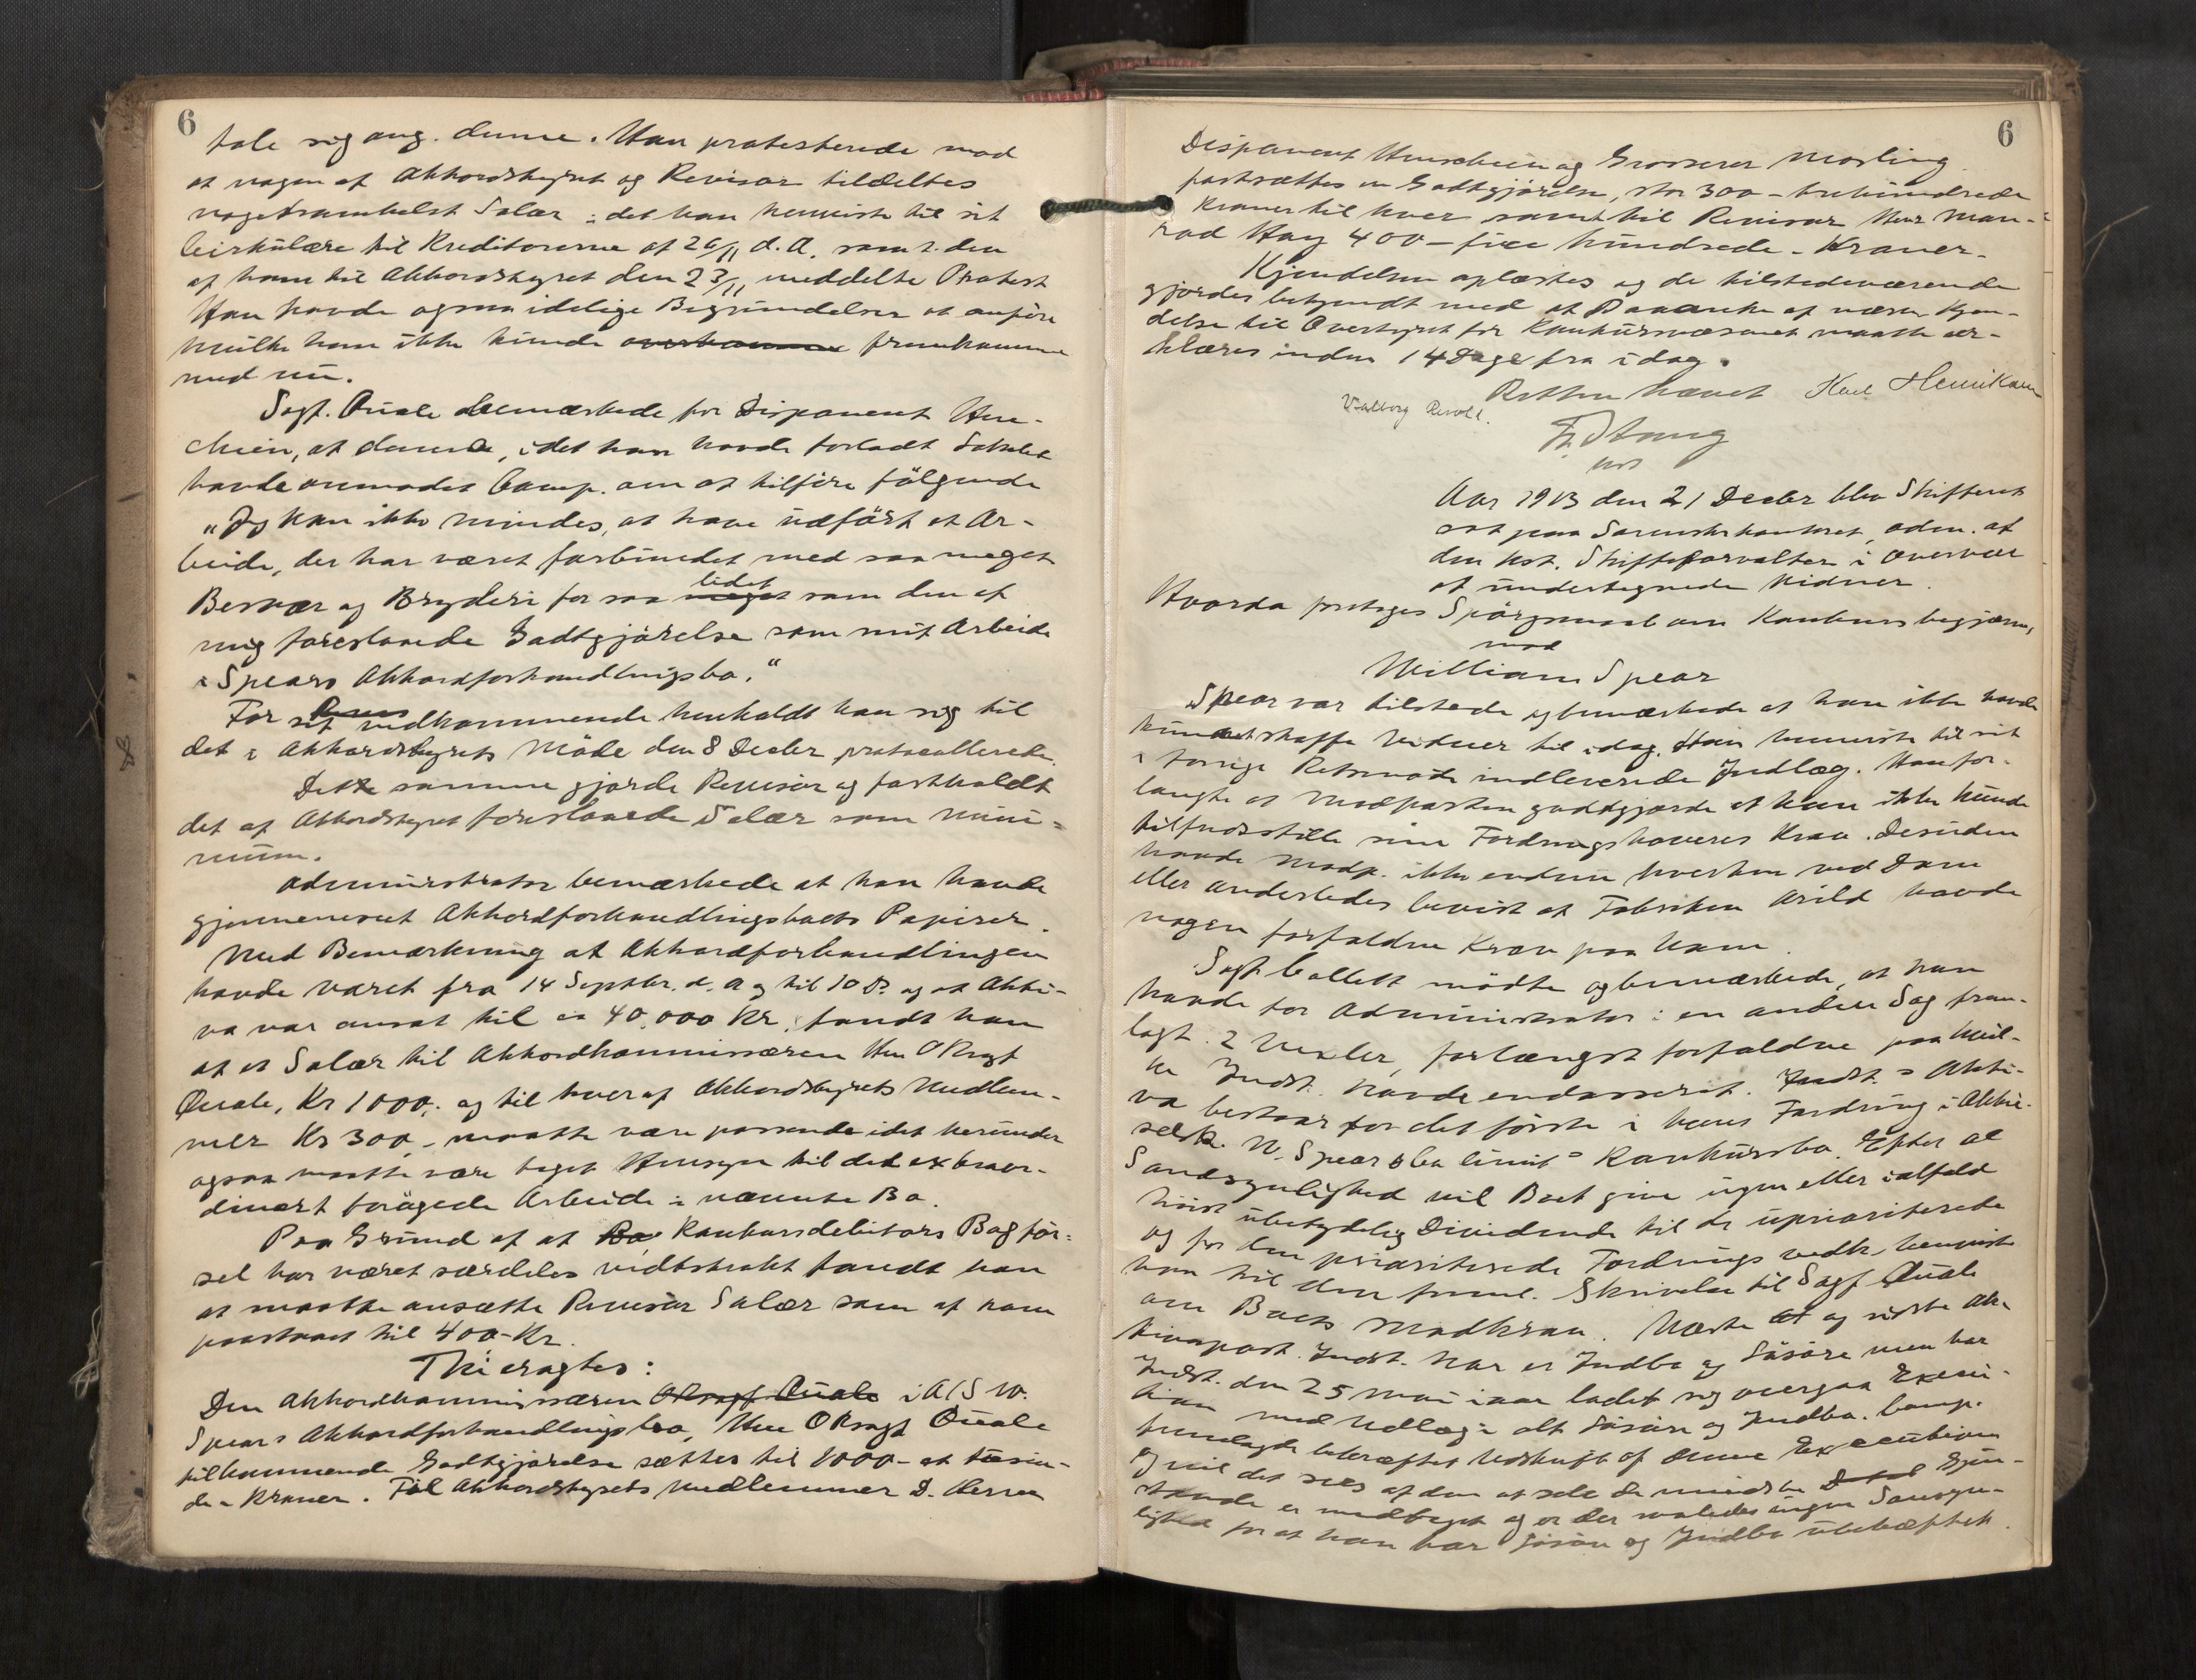 6
tale sig ang. denne. Han protesterede mod
at nogen af Akkordstyret og Revisor tildeltes
nogetsomhelst Salær; det han henviste til sit
Cirkulære til Kreditorerne af 26/11 d. A. samt den
af ham til Akkordstyret den 23/11 meddelte Protest
Han havde ogsaa Begrundelser at anføre
hvilke han ikke kunde fremkomme
med nu.
Sagf. Quale bemærkede for Disponent Hen-
chien, at denne, idet han havde forladt Lokalet
havde anmodet Comp. om at tilføre følgende
"Jeg kan ikke mindes, at have udført et Ar-
beide, der har været forbundet med saa meget
Besvær og Bryderi for saa lidet som den af
mig foreslaaede Godtgjørelse som mit Arbeide
i Spears Akkordforhandlingsbo."
For sit vedkommende henholdt han sig til
det i Akkordstyrets Møde den 8 Decbr protocollerede.
Dette samme gjorde Revisor og fastholdt
det af Akkordstyret foreslaaede Salær som mini-
mum.
Administrator bemærkede at han havde
gjennemseet Akkordforhandlingsboets Papirer.
Med Bemærkning at Akkordforhandlingen
havde varet fra 14 Septbr. d. A og til 10 Ds. og at Akti-
va var ansat til ca 40,000 Kr, fandt han
at et Salær til Akkordkommissæren Herr ORsagf
Quale, Kr 1000,- og til hver af Akkordstyrets Medlem-
mer Kr 300,- maatte være passende idet herunder
ogsaa maatte være taget Hensyn til det extraor-
dinært forøgede Arbeide i nævnte Bo.
Paa Grund af at Konkursdebitors Bogfør-
sel har været særdeles vidtstrakt fandt han
at maatte ansætte Revisor Salær som af ham
paastaaet til 400-Kr.
Thi eragtes:
Den Akkordkommissæren ORsagf Quale i A/S W.
Spears Akkordforhandlingsbo, Herr ORsagf Quale
tilkommende Godtgjørelse sættes til 1000- et tusin-
de - Kroner. Til Akkordstyrets Medlemmer D. Herrer
6
Disponent Henschien og Grosserer Morling
fastsættes en Godtgjørelse, stor 300 - trehundrede
Kroner til hver samt til Revisor Herr Man-
rad Hay 400 - fire hundrede - Kroner -
Kjendelsen oplæstes og de tilstedeværende
gjordes bekjendt med at Paaanke af nærv. Kjen-
delse til Overstyret for Konkursvæsenet maatte er-
klæres inden 14 Dage fra idag.
Retten hævet Karl Henriksen
Valborg
Aar 1913 den 21 Decbr blev Skifteret
sat paa Sorenskr.kontoret, adm. af
den kst. Skifteforvalter i Overvær
af undertegnede Vidner.
Hvorda foretoges Spørgsmaal om Konkursbegjæring
mod
William Spear
Spear var tilstede og bemærkede at han ikke havde
kunnet skaffe Vidner til idag. Han henviste til sit
i forrige Retsmøde indleverede Indlæg. Han for-
langte at Modparten godtgjorde at han ikke kunde
tilfredsstille sine Fordringshaveres Krav. Desuden
havde Modp. ikke endnu hverken ved Dom
eller anderledes bevist at Fabriken Arild havde
nogen forfaldne Krav paa ham.
Sagf. Collett mødte og bemærkede, at han
havde for Administrator i en anden Sag frem-
lagt 2 Vexler, forlængst forfaldne paa hvil-
ke Indst. havde endosseret. Indst.s Akti-
va bestaar for det første i hans Fordring i Aktie-
selsk. W. Spear & Co limit.s Konkursbo. Efter al
Sandsynlighed vil Boet give ingen eller ialfald
høist ubetydelig Dividende til de uprioriterede
og for den prioriterede Fordrings vedk. henviste
han til den freml. Skrivelse til Sagf Quale
om Boets Modkrav. Næste og sidste Ak-
tivapost. Indst. har er Indbo og Løsøre men har
Indst. den 25 Mai iaar ladet sig overgaa Execu-
tion med Udlæg i alt Løsøre og Indbo. Comp.
fremlagde bekræftet Udskrift af denne Execution
og vil det sees af den at selv de mindste Gjen-
stande er medtaget og er der saaledes ingen Sansyn-
lighed for at han har Løsøre og Indbo ubehæftet.